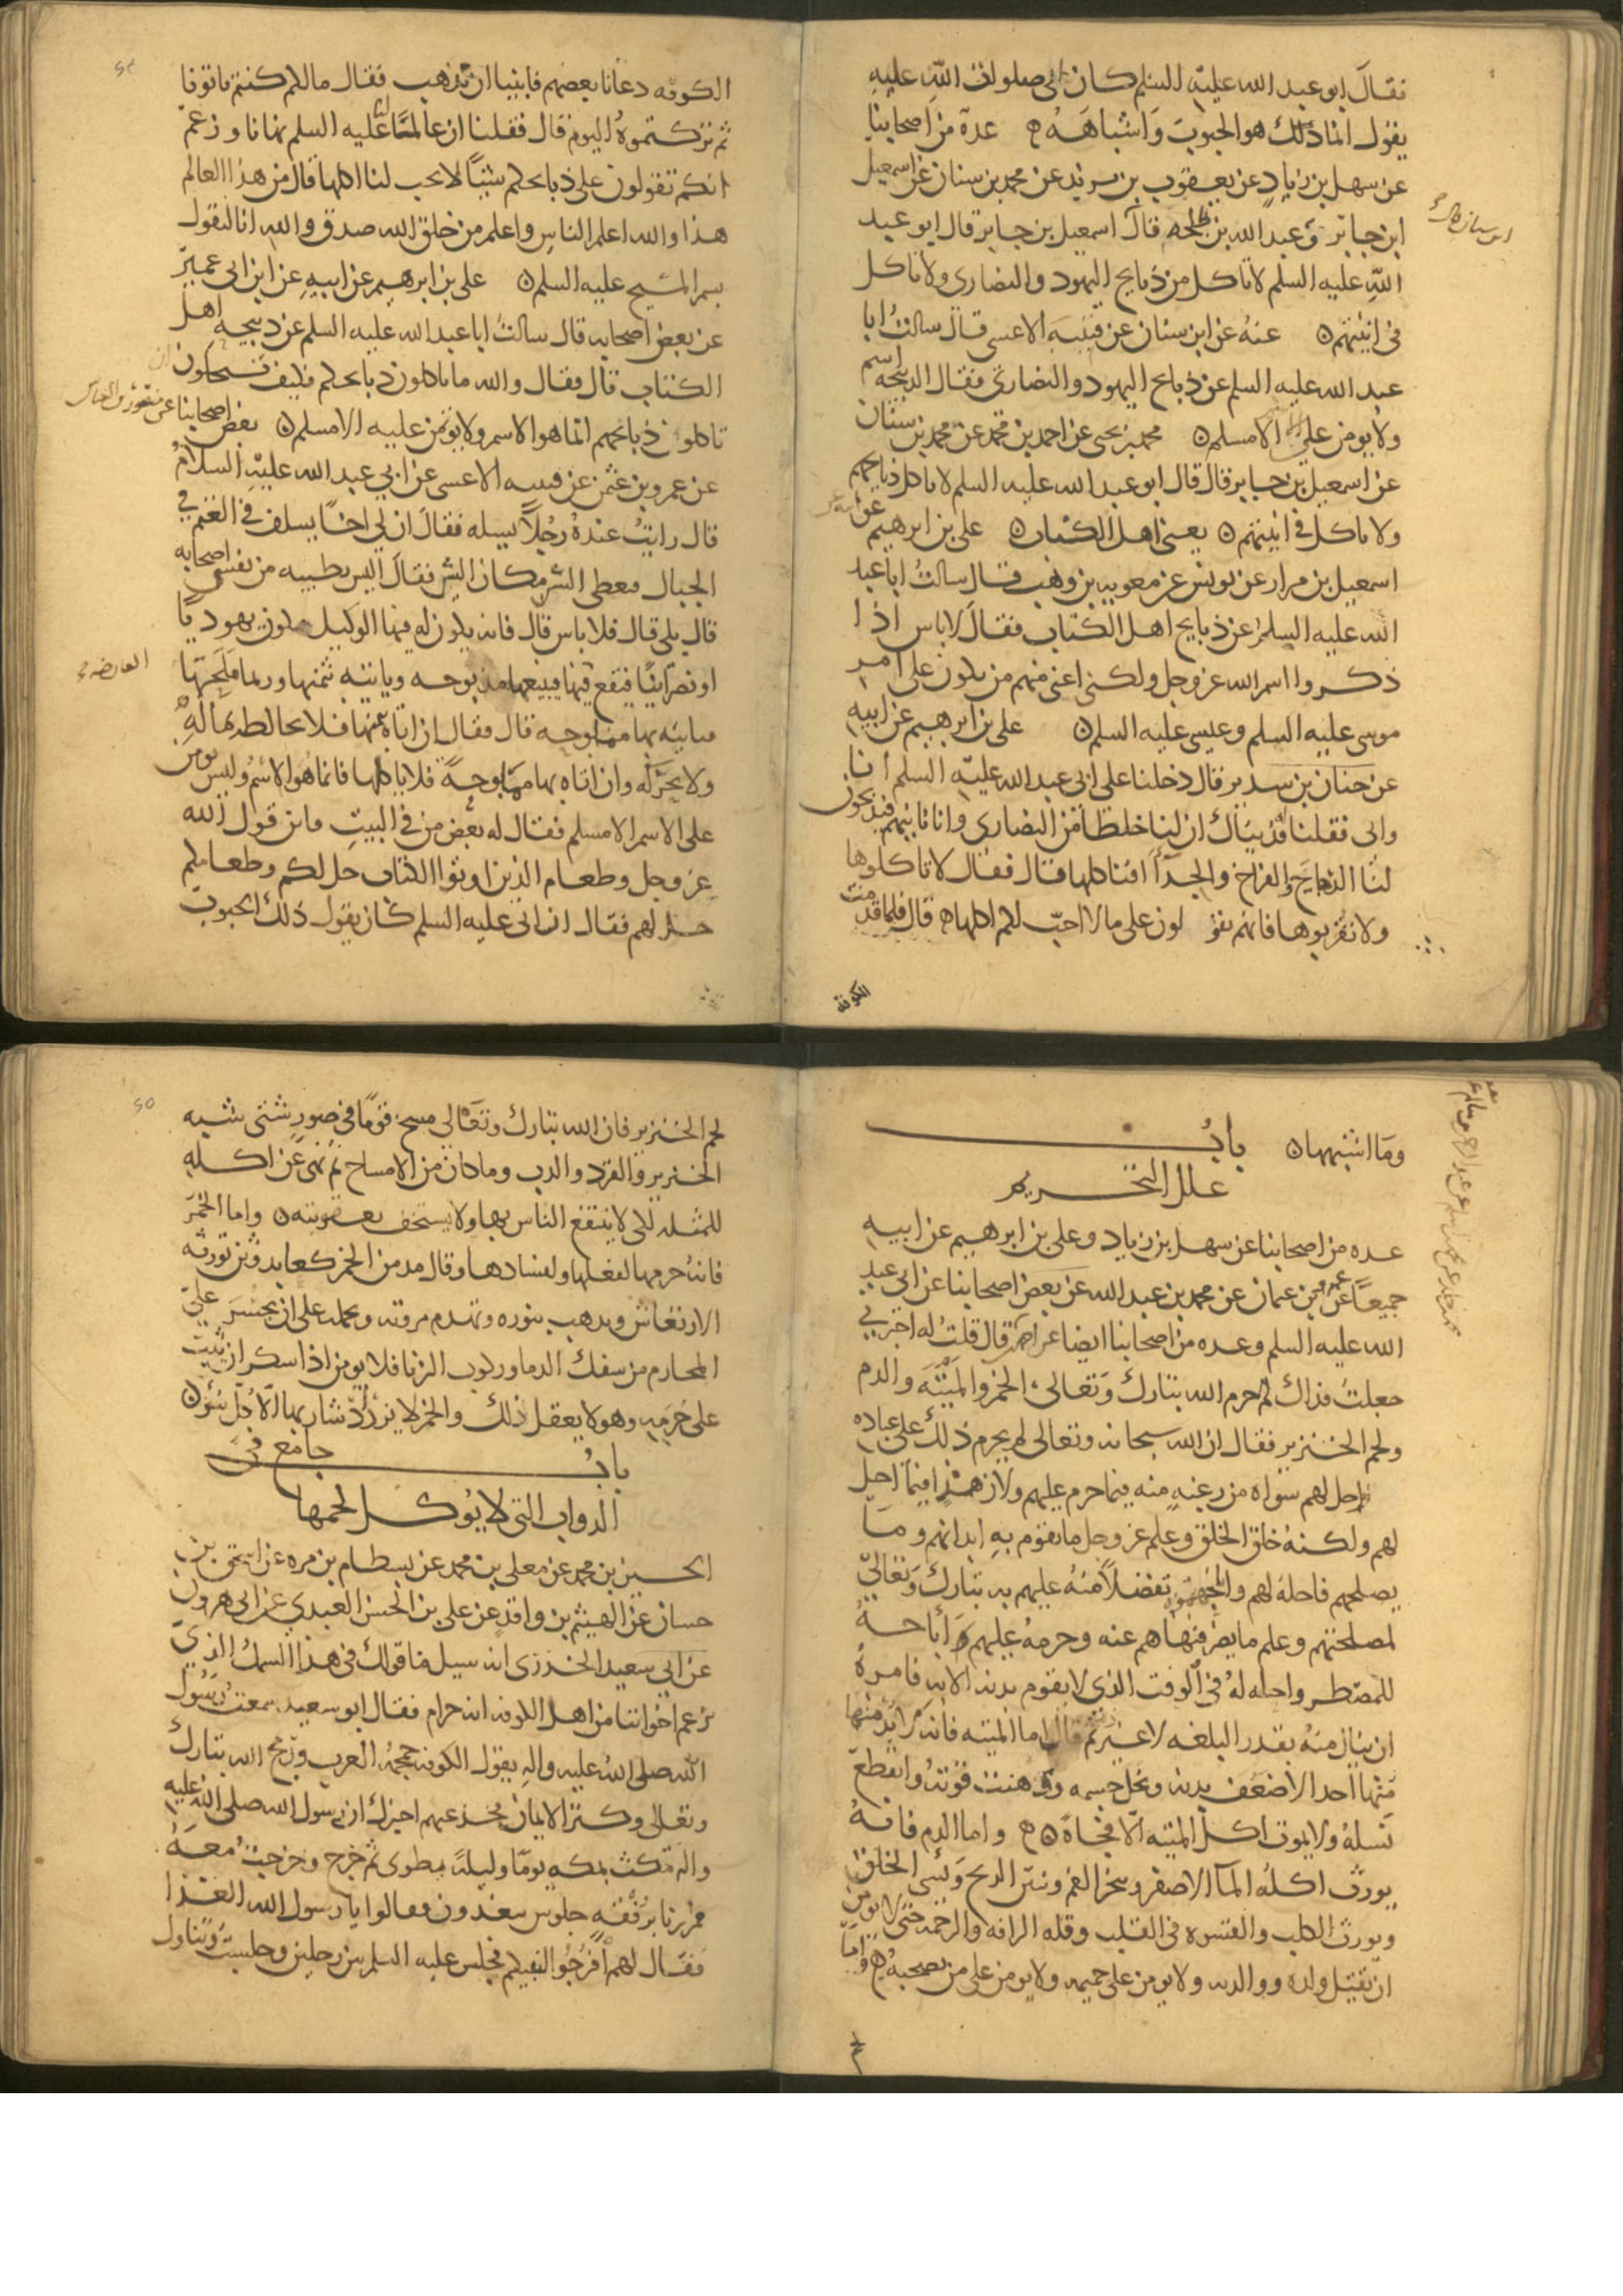 فقال ابو عبد الله عليه السلم كان ابى صلوات الله عليه
يقول انما ذلك هو الحبوب واشباهه عدة من اصحابنا
عن سهل بن زياد عن يعقوب بن يزيد عن محمد بن سنان عن اسمعيل
ابن جابر وعبد الله بن طلحه قال اسمعيل بن جابر قال ابو عبد
الله عليه السلم لا تاكل من ذبايح اليهود والنصارى ولا تاكل
فى انيتهم عنه عن ابن سنان عن قتيبه الاعشى قال سالت ابا
عبد الله عليه السلم عن ذبايح اليهود والنصارى فقال الذبيحه اسم
ولا يومن على الاسم الا مسلم محمد بن يحيى عن احمد بن محمد عن محمد بن سنان
عن اسمعيل بن جابر قال قال ابو عبد الله عليه السلم لا تاكل ذبايحهم
ولا تاكل فى انيتهم يعنى اهل الكتاب على بن ابرهيم عن ابيه عن
اسمعيل بن مرار عن يونس عن معويه بن وهب قال سالت ابا عبد
الله عليه السلم عن ذبايح اهل الكتاب فقال لا باس اذا
ذكروا اسم الله عز وجل ولكنى اعنى منهم من يكون على امر
موسى عليه السلم وعيسى عليه السلم على بن ابرهيم عن ابيه
عن حنان بن سدير قال دخلنا على ابى عبد الله عليه السلم انا
وابى فقلنا فديناك ان لنا خلطا من النصارى وانا ناتيهم فيذبحون
لنا الذبايح والفراخ والجدا افناكلها قال فقال لا تاكلوها
ولا تقربوها فانهم يقو لون على ما لا احب لكم اكلها قال فلما قدمت
الكوفة
الكوفه دعانا بعضهم فابينا ان نذهب فقال ما لكم كنتم تاتونا
ثم تركتموه اليوم قال فقلنا ان عالمنا عليه السلم نهانا وزعم
انكم تقولون على ذبايحكم شيئا لا يحب لنا اكلها قال من هذا العالم
هذا والله اعلم الناس واعلم من خلق الله صدق والله انا لنقول
بسم المسيح عليه السلم على بن ابرهيم عن ابيه عن ابن ابى عمير
عن بعض اصحابه قال سالت ابا عبد الله عليه السلم عن ذبيحه اهل
الكتاب قال فقال والله ما ياكلون ذبايحكم فكيف تستحلون ان
تاكلون ذبايحهم انما هو الاسم ولا يؤتمن عليه الا مسلم بعض اصحابنا عن منصور بن العباس
عن عمرو بن عثمن عن قتيبه الاعشى عن ابي عبد الله عليه السلام
قال رايت عنده رجلا يسله فقال ان لي اخا يسلف فى الغنم في
الجبال فيعطى السن مكان السن فقال اليس بطيبه من نفس اصحابه
قال بلى قال فلا باس قال فانه يكون له فيها الوكيل فيكون يهوديا
او نصرانيا فتقع فيها العارضه فيبيعها مذبوحه وياتيه ثمنها وربما ملحها
فياتيه بها مملوحه قال فقال ان اتاه بثمنها فلا يخالطه بماله
ولا يحركه وان اتاه بها مملوحة فلا ياكلها فانما هو الاسم وليس يومن
على الاسم الا مسلم فقال له بعض من في البيت فاين قول الله
عز وجل وطعام الذين اوتوا الكتاب حل لكم وطعامكم
حل لهم فقال ان ابى عليه السلم كان يقول ذلك الحبوب
وما اشبهها باب
علل التحريم
عده من اصحابنا عن سهل بن زياد وعلى بن ابرهيم عن ابيه
جميعا عن عمرو بن عثمان عن محمد بن عبد الله عن بعض اصحابنا عن ابى عبد
الله عليه السلم وعده من اصحابنا ايضا عن احمد قال قلت له اخبرني
جعلت فداك لم حرم الله تبارك وتعالى الخمر والميته والدم
ولحم الخنزير فقال ان الله سبحانه وتعالى لم يحرم ذلك على عباده
واحل لهم سواه من رغبه منه فيما حرم عليهم ولا زهد فيما احل
لهم ولكنه خلق الخلق وعلم عز وجل ما يقوم به ابدانهم وما
يصلحهم فاحله لهم واباحهموه تفضلا منه عليهم به تبارك وتعالى
لمصلحتهم وعلم ما يضرهم فنهاهم عنه وحرمه عليهم ثم اباحه
للمضطر واحله له فى الوقت الذى لا يقوم بدنه الا به فامره
ان ينال منه بقدر البلغه لا غير ثم قال اما الميته فانه لا يدمنها
منها احد الا ضعف بدنه ونحل جسمه ووهنت قوته وانقطع
نسله ولا يموت اكل الميته الا فجاة واما الدم فانه
يورث اكله الما الاصفر ويبخر الفم وينتن الريح ويسى الخلق
ويورث الكلب والقسوه فى القلب وقله الرافه والرحمه حتى لا يومن
ان يقتل ولده ووالديه ولا يومن على حميمه ولا يومن على من يصحبه واما
لحم الخنزير فان الله تبارك وتعالى مسخ قوما فى صور شتى شبه
الخنزير والقرد والدب وما كان من الامساخ ثم نهى عن اكله
للمثله لكى لا ينتفع الناس بها ولا يستخف بعقوبته واما الخمر
فانه حرمها لفعلها ولفسادها وقال مدمن الخمر كعابد وثن تورثه
الارتعاش ويذهب بنوره وتهدم مروته وتحمله على ان يجسر على
المحارم من سفك الدما وركوب الزنا فلا يومن اذا سكر ان يثبت
على حرمه وهو لا يعقل ذلك والخمر لا يزداد شاربها الا كل سوء
باب جامع فى
الدواب التى لا يؤكل لحمها
الحسين بن محمد عن معلى بن محمد عن بسطام بن مره عن اسحق بن
حسان عن الهيثم بن واقد عن على بن الحسن العبدي عن ابى هرون
عن ابي سعيد الخدرى انه سيل ما قولك فى هذا السمك الذي
يزعم اخواننا من اهل الكوفه انه حرام فقال ابو سعيد سمعت رسول
الله صلى الله عليه واله يقول الكوفه جمجمه العرب ورمح الله تبارك
وتعالى وكنز الايمان فخذ عنهم اخبرك ان رسول الله صلى الله عليه
واله مكث بمكه يوما وليلة يطوى ثم خرج وخرجت معه
فمررنا برفقة جلوس يتغدون فقالوا يا رسول الله الغدا
فقال لهم افرجوا لنبيكم فجلس عليه السلم بين رجلين وجلست وتناول